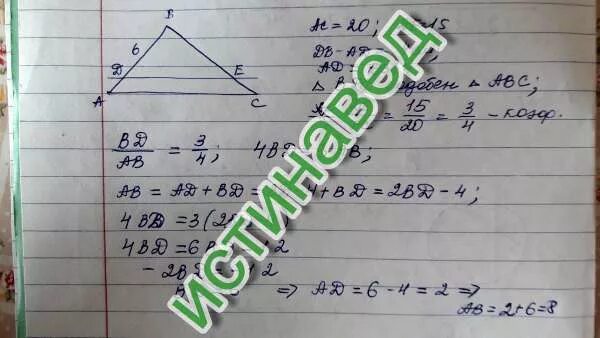 B
6
D E
A C
AC = 20; 15
DB - AD
AD
Δ B подобен Δ ABC;
= 15/20 = 3/4 - коэф.
BD/AB = 3/4; 4BD B;
AB = AD + BD = 4 + BD = 2BD - 4;
4BD = 3(2
4BD = 6B 2
- 2B 2
=> AD = 6 - 4 = 2 =>
AB = 2 + 6 = 8
истинавед